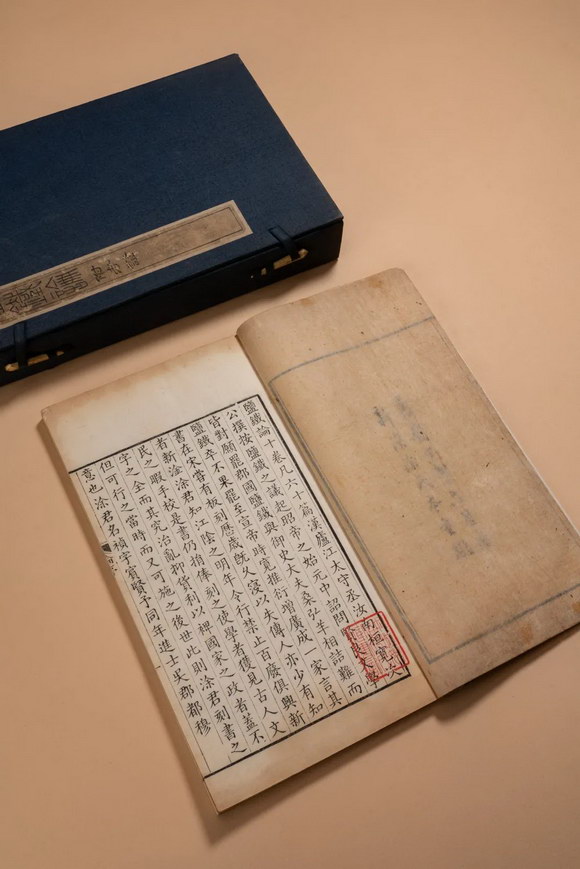 鐵論
鹽鐵論十卷凡六十篇漢廬江太守丞汝南桓寬次
公撰按鹽鐵之議起昭帝之始元中詔問賢良文學
皆對願罷郡國鹽鐵與御史大夫桑弘羊相詰難而
鹽鐵卒不果罷至宣帝時寬推衍增廣成一家言其
書在宋嘗有板刻歷歲既久寖以失傳人亦少有知
者新淦涂君知江陰之明年令行禁止百廢俱興新
民之暇手校是書仍捐俸刻之使學者獲見古人文
字之全而其究治亂抑貨利以裨國家之政者蓋不
但可行之當時而又可施之後世此則涂君刻書之
意也涂君名禎字賓賢予同年進士吳郡都穆